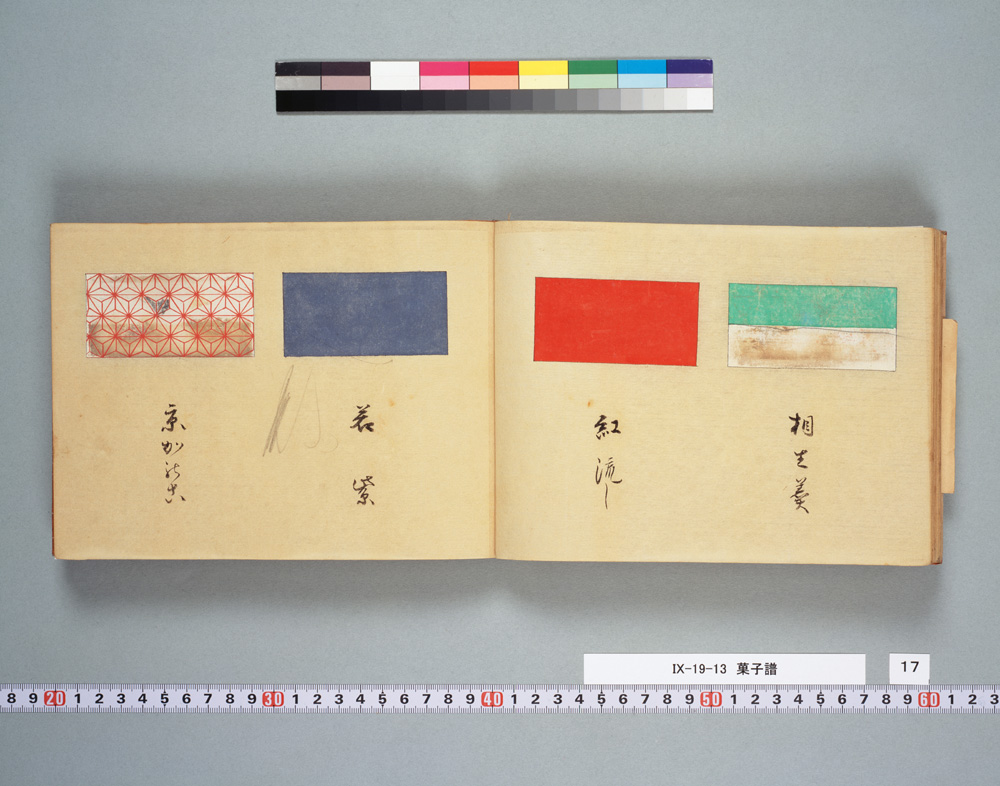 相生羹
紅流し
若紫
京かのこ
IX-19-13 菓子譜
17
8 9 20 1 2 3 4 5 6 7 8 9 30 1 2 3 4 5 6 7 8 9 40 1 2 3 4 5 6 7 8 9 50 1 2 3 4 5 6 7 8 9 60 1 2 3